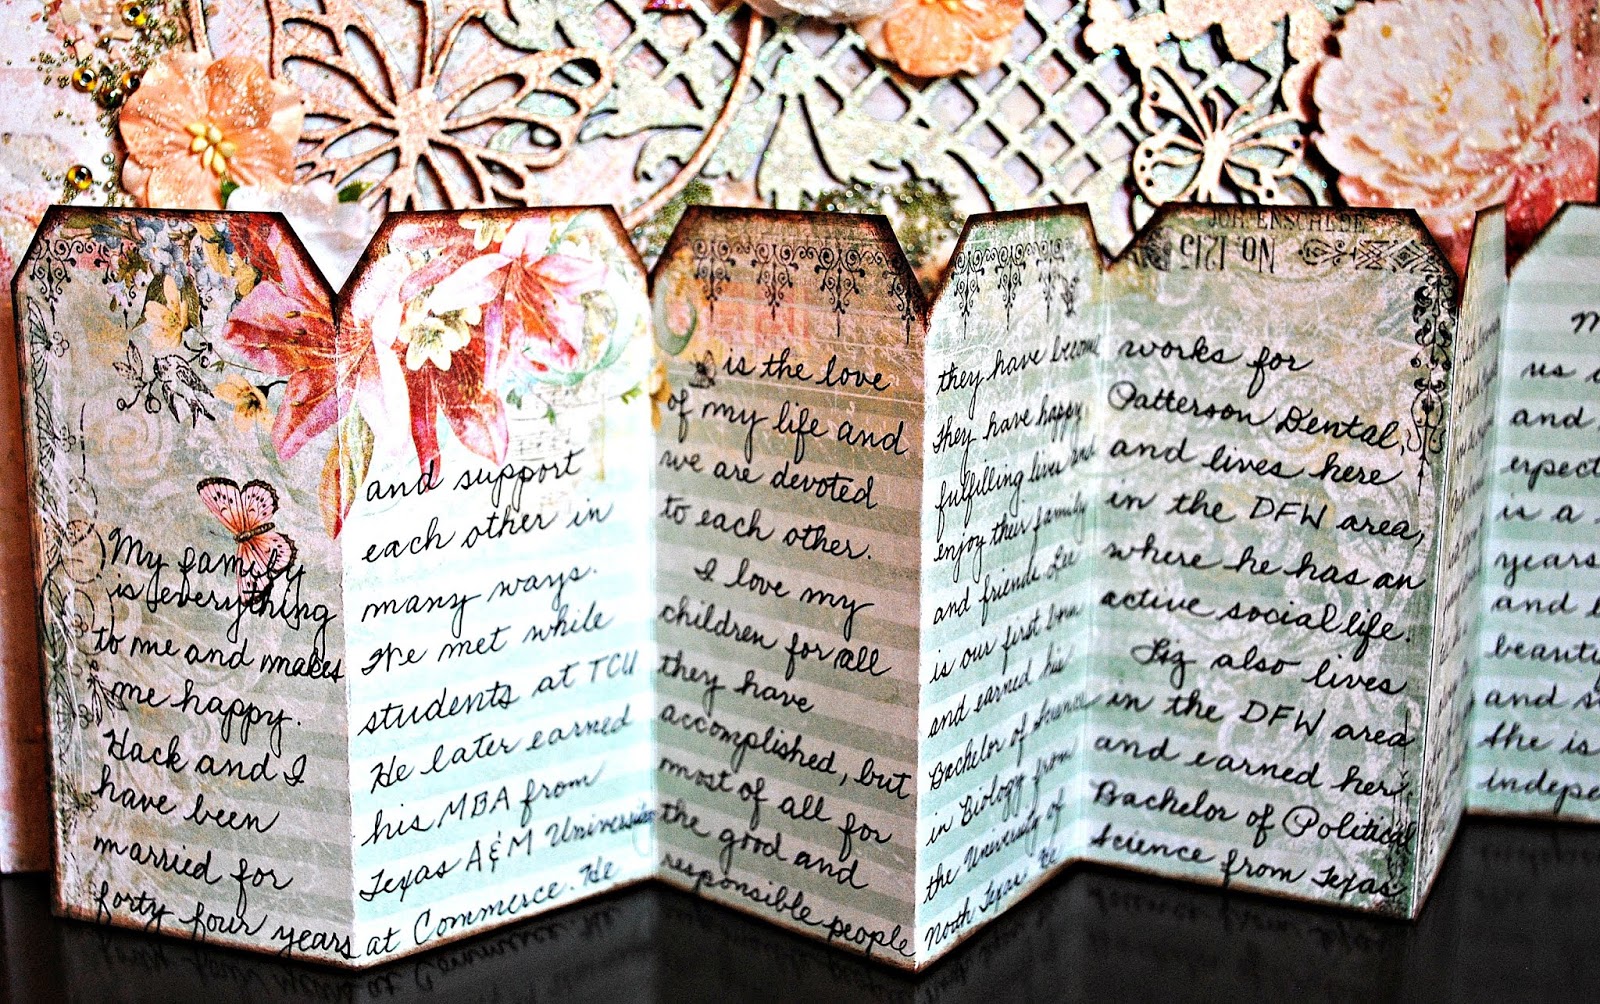 My family
is everything
to me and makes
me happy.
Hack and I
have been
married for
forty four years
and support
each other in
many ways.
We met while
students at TCU
He later earned
his MBA from
Texas A&M University
at Commerce. He
is the love
of my life and
we are devoted
to each other.
I love my
children for all
they have
accomplished, but
most of all for
the good and
responsible people
they have become
They have happy
fulfilling lives and
enjoy their family
and friends Lee
is our first born
and earned his
Bachelor of Science
in Biology from
the University of
North Texas He
JOH. ENSCHEDE
No. 1215
works for
Patterson Dental,
and lives here
in the DFW area,
where he has an
active social life.
Liz also lives
in the DFW area
and earned her
Bachelor of Political
Science from Texas
us
and
is a
years
and
beauty
and
the is